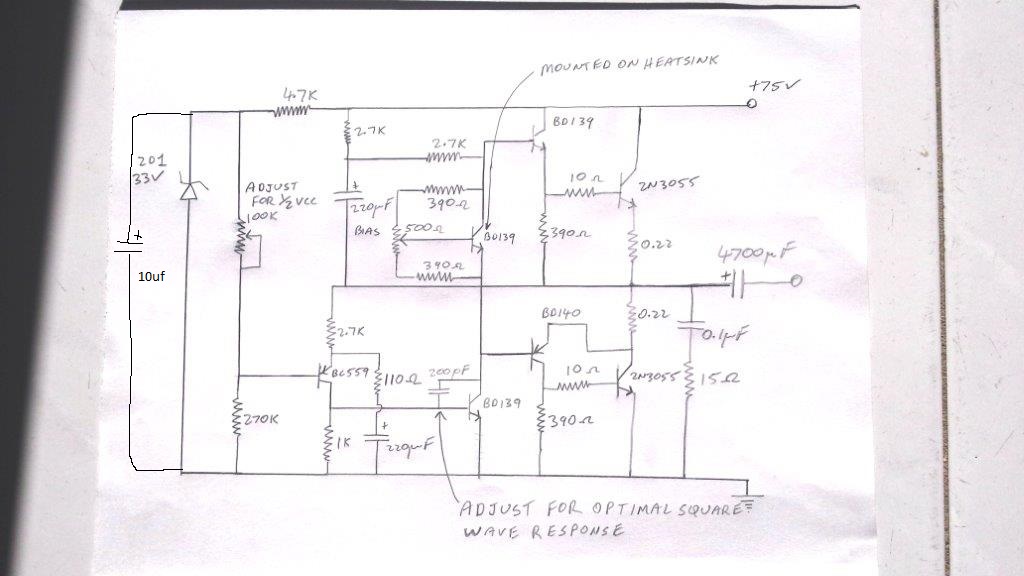 MOUNTED ON HEATSINK
+75V
4.7K
BD139
2.7K
2.7K
201
33V
ADJUST
FOR ½ VCC
100K
10Ω
2N3055
+
390Ω
220µF
BIAS
500Ω
BD139
390Ω
0.22
+
10uf
390Ω
4700µF
+
BD140
0.22
0.1µF
2.7K
BC559
110Ω
200pF
10Ω
2N3055
15Ω
BD139
270K
1K
+
220µF
390Ω
ADJUST FOR OPTIMAL SQUARE
WAVE RESPONSE